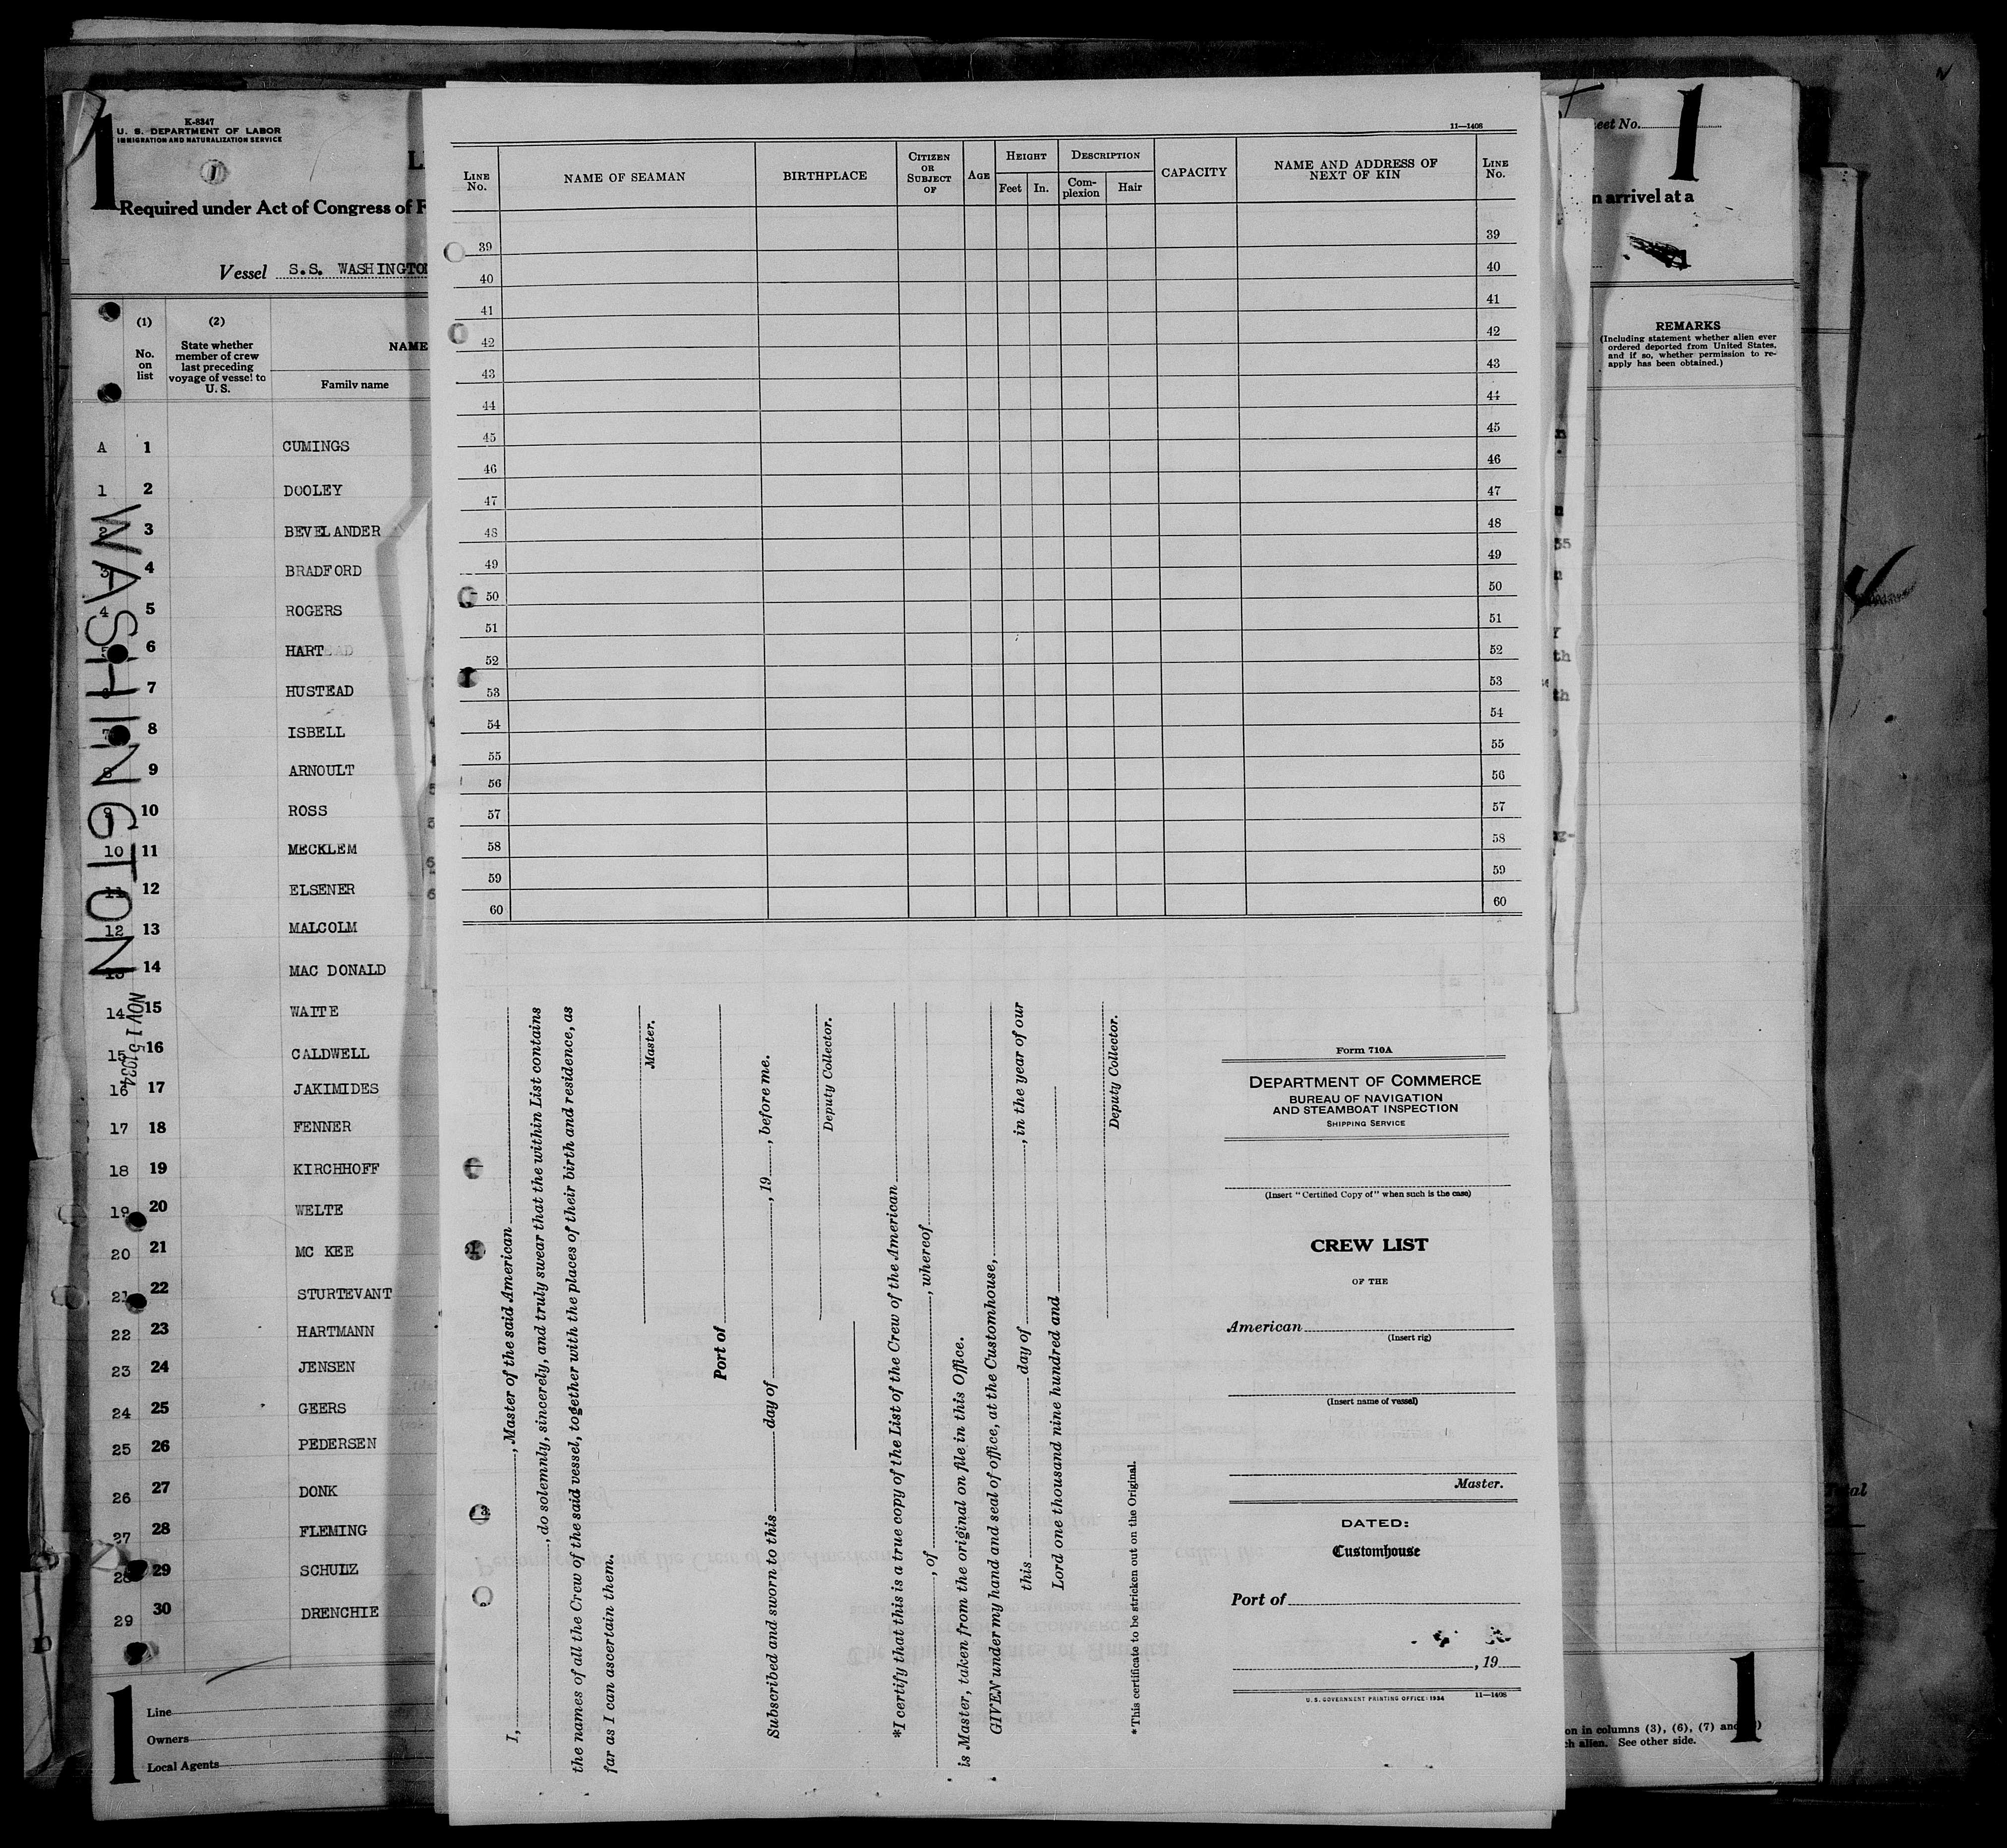 K-8347
U. S. DEPARTMENT OF LABOR
IMMIGRATION AND NATURALIZATION SERVICE
1
1
Required under Act of Congress of F
Vessel S.S. WASHINGTON
(1)
No.
on
list
(2)
State whether
member of crew
last preceding
voyage of vessel to
U. S.
NAME
Family name
A 1 CUMINGS
1 2 DOOLEY
2 3 BEVELANDER
3 4 BRADFORD
4 5 ROGERS
6 HART
7 HUSTEAD
7 8 ISBELL
8 9 ARNOULT
9 10 ROSS
10 11 MECKLEM
11 12 ELSENER
12 13 MALCOLM
13 14 MAC DONALD
14 15 WAITE
15 16 CALDWELL
16 17 JAKIMIDES
17 18 FENNER
18 19 KIRCHHOFF
19 20 WELTE
20 21 MC KEE
21 22 STURTEVANT
22 23 HARTMANN
23 24 JENSEN
24 25 GEERS
25 26 PEDERSEN
26 27 DONK
27 28 FLEMING
28 29 SCHULZ
29 30 DRENCHIE
WASHINGTON
NOV 15 1934
1
Line
Owners
Local Agents
11—1408
LINE
No.
NAME OF SEAMAN
BIRTHPLACE
CITIZEN
OR
SUBJECT
OF
AGE
HEIGHT
Feet In.
DESCRIPTION
Com-
plexion
Hair
CAPACITY
NAME AND ADDRESS OF
NEXT OF KIN
LINE
No.
39 39
40 40
41 41
42 42
43 43
44 44
45 45
46 46
47 47
48 48
49 49
50 50
51 51
52 52
53 53
54 54
55 55
56 56
57 57
58 58
59 59
60 60
I, , Master of the said American
, do solemnly, sincerely, and truly swear that the within List contains
the names of all the Crew of the said vessel, together with the places of their birth and residence, as
far as I can ascertain them.
Master.
Port of
Subscribed and sworn to this day of , 19 , before me.
Deputy Collector.
*I certify that this is a true copy of the List of the Crew of the American
, of , whereof
is Master, taken from the original on file in this Office.
GIVEN under my hand and seal of office, at the Customhouse,
this day of , in the year of our
Lord one thousand nine hundred and
Deputy Collector.
*This certificate to be stricken out on the Original.
Form 710A
DEPARTMENT OF COMMERCE
BUREAU OF NAVIGATION
AND STEAMBOAT INSPECTION
SHIPPING SERVICE
(Insert "Certified Copy of" when such is the case)
CREW LIST
OF THE
American
(Insert rig)
(Insert name of vessel)
Master.
DATED:
Customhouse
Port of
, 19
U. S. GOVERNMENT PRINTING OFFICE: 1934 11—1408
eet No.
1
n arrivel at a
REMARKS
(Including statement whether alien ever
ordered deported from United States,
and if so, whether permission to re-
apply has been obtained.)
55
th
th
on in columns (3), (6), (7) and
ch alien. See other side.
1